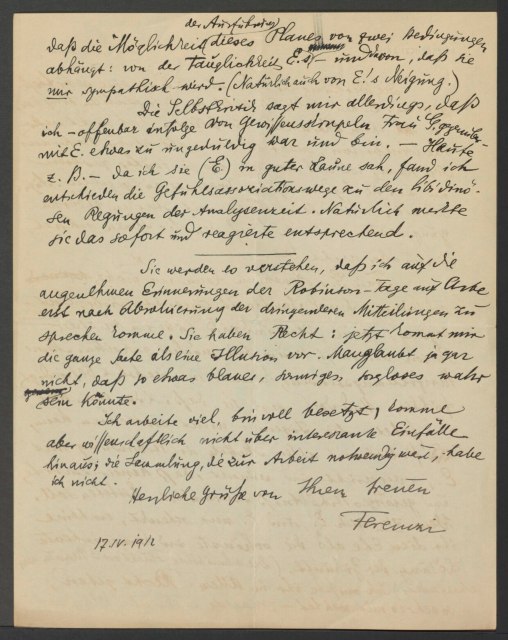 der Ausführung
daß die Möglichkeit dieses Planes von zwei Bedingungen
abhängt: von der Tauglichkeit E.s und davon, daß sie
mir sympathisch werd. (Natürlich auch von E.'s Neigung.)
Die Selbstkritik sagt mir allerdings, daß
ich – offenbar infolge von Gewissensskrupeln Frau G. gegenüber –
mit E. etwas zu ungeduldig war und bin. – Heute
z. B. – da ich sie (E.) in guter Laune sah, fand ich
entschieden die Gefühlsassoziationswege zu den libidinö-
sen Regungen der Analysenzeit. Natürlich merkte
sie das sofort und reagierte entsprechend.
Sie werden es verstehen, daß ich auf die
angenehmen Erinnerungen der Robinson-Tage auf Arbe
erst nach Absolvierung der dringenderen Mitteilungen zu
sprechen komme. Sie haben Recht: jetzt kommt mir
die ganze Sache als eine Illusion vor. Man glaubt ja gar
nicht, daß so etwas blaues, sonniges, sorgloses wahr
sein könnte.
Ich arbeite viel, bin voll besetzt, komme
aber wissenschaftlich nicht über interessante Einfälle
hinaus; die Sammlung, die zur Arbeit notwendig wäre, habe
ich nicht.
Herzliche Grüße von Ihrem treuen
Ferenczi
17. IV. 1912